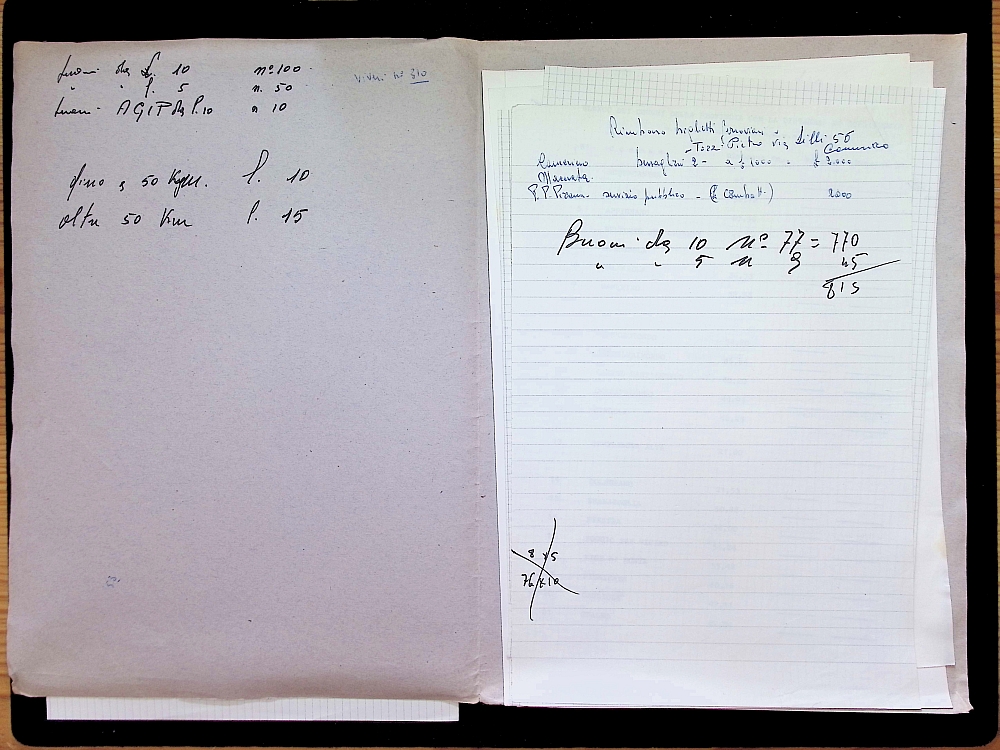 Buoni da L. 10 n° 100
" " L. 5 n. 50
Buoni AGIP da L. 10 n 10
viveri n° 310
fino a 50 Kgm. L. 10
oltre 50 Km L. 15
Rimborso biglietti ferroviari
Tozzi Pietro via Lilli 56
Camerino
Camerino bersaglieri 2 - a £ 1000 £ 2.000
Macerata
servizio pubblico - 2000
Buoni da 10 n° 77 = 770
" " 5 n 9 45
815
8 x 5
76 x 10